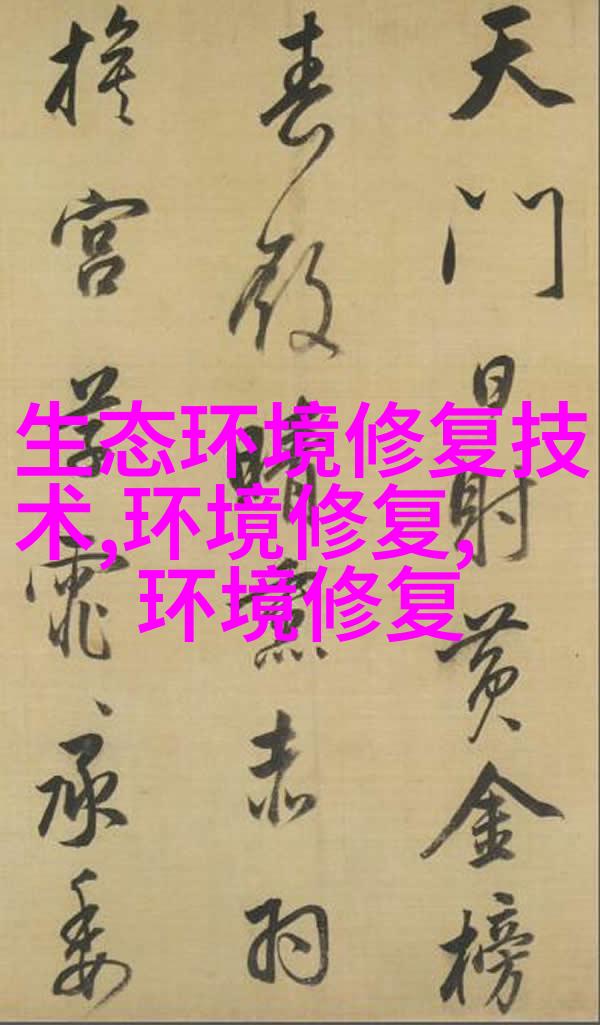 生态环境修复技
术,环境修复,
环境修复
天門日射黄金榜
春殿晴熏赤羽
旗宫草霏〻承委